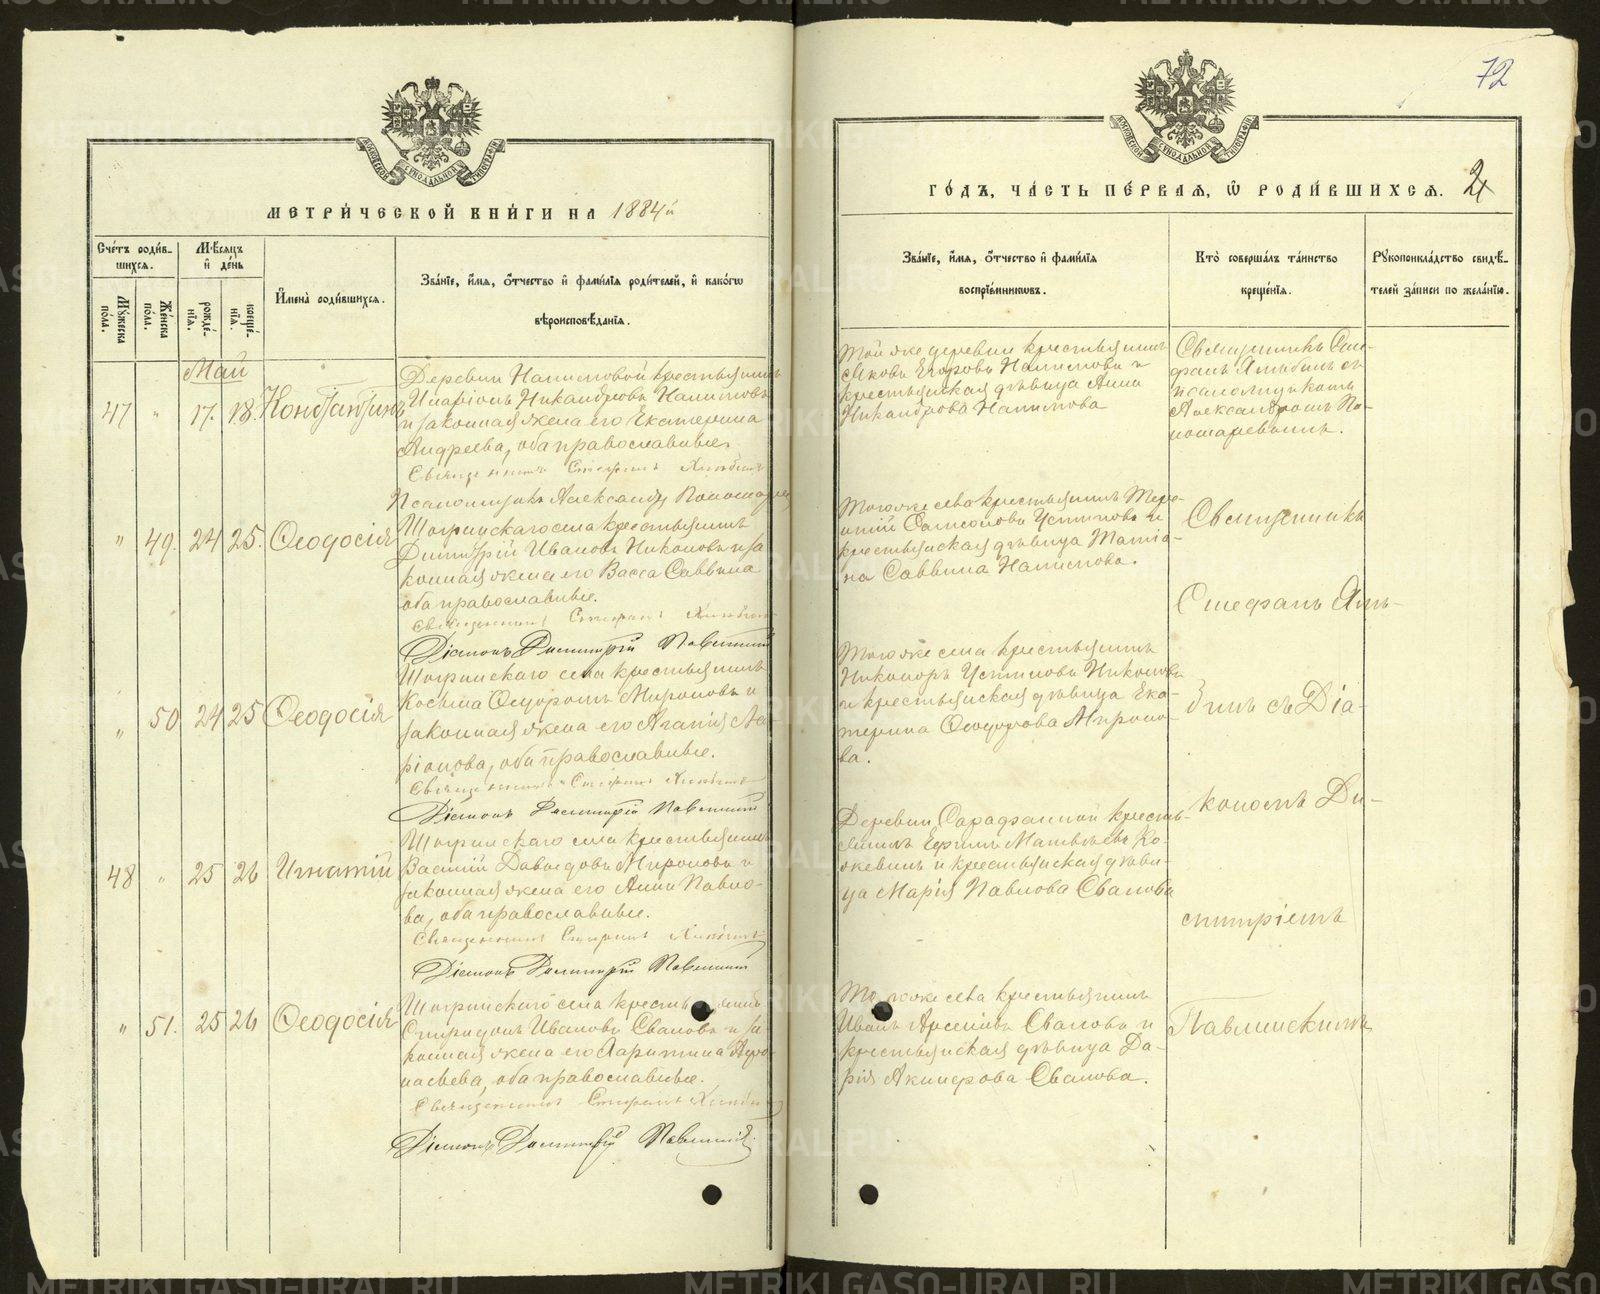 72
МЕТРИ́ЧЕСКОЙ КНИ́ГИ НА 1884й
ГО́ДЪ, ЧА́СТЬ ПЕ́РВАЯ, Ѡ РОДИ́ВШИХСЯ. 2
Сче́тъ роди́в-
шихся.
Му́жеска по́ла.
Же́нска по́ла.
Мѣ́сяцъ
и҆ де́нь
рожде́-
нїѧ.
креще́-
нїѧ.
И҆мена̀ роди́вшихся.
Зва́нїе, и҆́мѧ, ѻ҆́тчество и҆ фамѝлїѧ роди́телей, и҆ како́гѡ
вѣроисповѣ́данїѧ.
Зва́нїе, и҆́мѧ, ѻ҆́тчество и҆ фамѝлїѧ
воспрїе́мниковъ.
Кто̀ соверша́лъ та́инство
креще́нїѧ.
Рꙋкоприкла́дство свидѣ́-
телей за́писи по жела́нїю.
Май
47 " 17. 18. Константинъ
Деревни Налимовой крестьянинъ
Иларіонъ Никандровъ Налимовъ
и законная жена его Екатерина
Андреева, оба православные.
Священникъ Стефанъ
Псаломщикъ Александръ Пономаревъ
Той же деревни крестьянинъ
Яковъ Егоровъ Налимовъ и
крестьянская дѣвица Анна
Никандрова Налимова
Священникъ Сте-
фанъ съ
псаломщикомъ
Александромъ По-
номаревымъ.
" 49. 24 25. Ѳеодосія
Шогринскаго села крестьянинъ
Димитрій Ивановъ Никоновъ и за-
конная жена его Васса Саввина
оба православные.
Священникъ Стефанъ
Діаконъ Димитрій Павлинскій
Того же села крестьянинъ
Самсоновъ Устиновъ и
крестьянская дѣвица Татіа-
на Саввина Налимова.
Священникъ
Стефанъ
" 50 24 25 Ѳеодосія
Шогринскаго села крестьянинъ
Косьма Ѳедоровъ Мироновъ и
законная жена его Агапія Ла-
ріонова, оба православные.
Священникъ Стефанъ
Діаконъ Димитрій Павлинскій
Того же села крестьянинъ
Никаноръ Устиновъ Никоновъ
и крестьянская дѣвица Ека-
терина Ѳеодорова Мироно-
ва.
съ Діа-
48 " 25 26 Игнатій
Шогринскаго села крестьянинъ
Василій Давыдовъ Мироновъ и
законная жена его Анна Павло-
ва, оба православные.
Священникъ Стефанъ
Діаконъ Димитрій Павлинскій
Деревни Сарафанной кресть-
янинъ Ефимъ Матвѣевъ Ко-
жевинъ и крестьянская дѣви-
ца Марія Павлова Сваλова
кономъ Ди-
митріемъ
" 51. 25 26 Ѳеодосія
Шогринскаго села крестьянинъ
Спиридонъ Ивановъ Сваловъ и за-
конная жена его Харитина Аѳа-
насьева, оба православные.
Священникъ Стефанъ
Діаконъ Димитрій Павлинскій.
Того же села крестьянинъ
Иванъ Арсеніевъ Сваловъ и
крестьянская дѣвица Да-
рія Свалова.
Павлинскимъ
METRIKI.GASO-URAL.RU